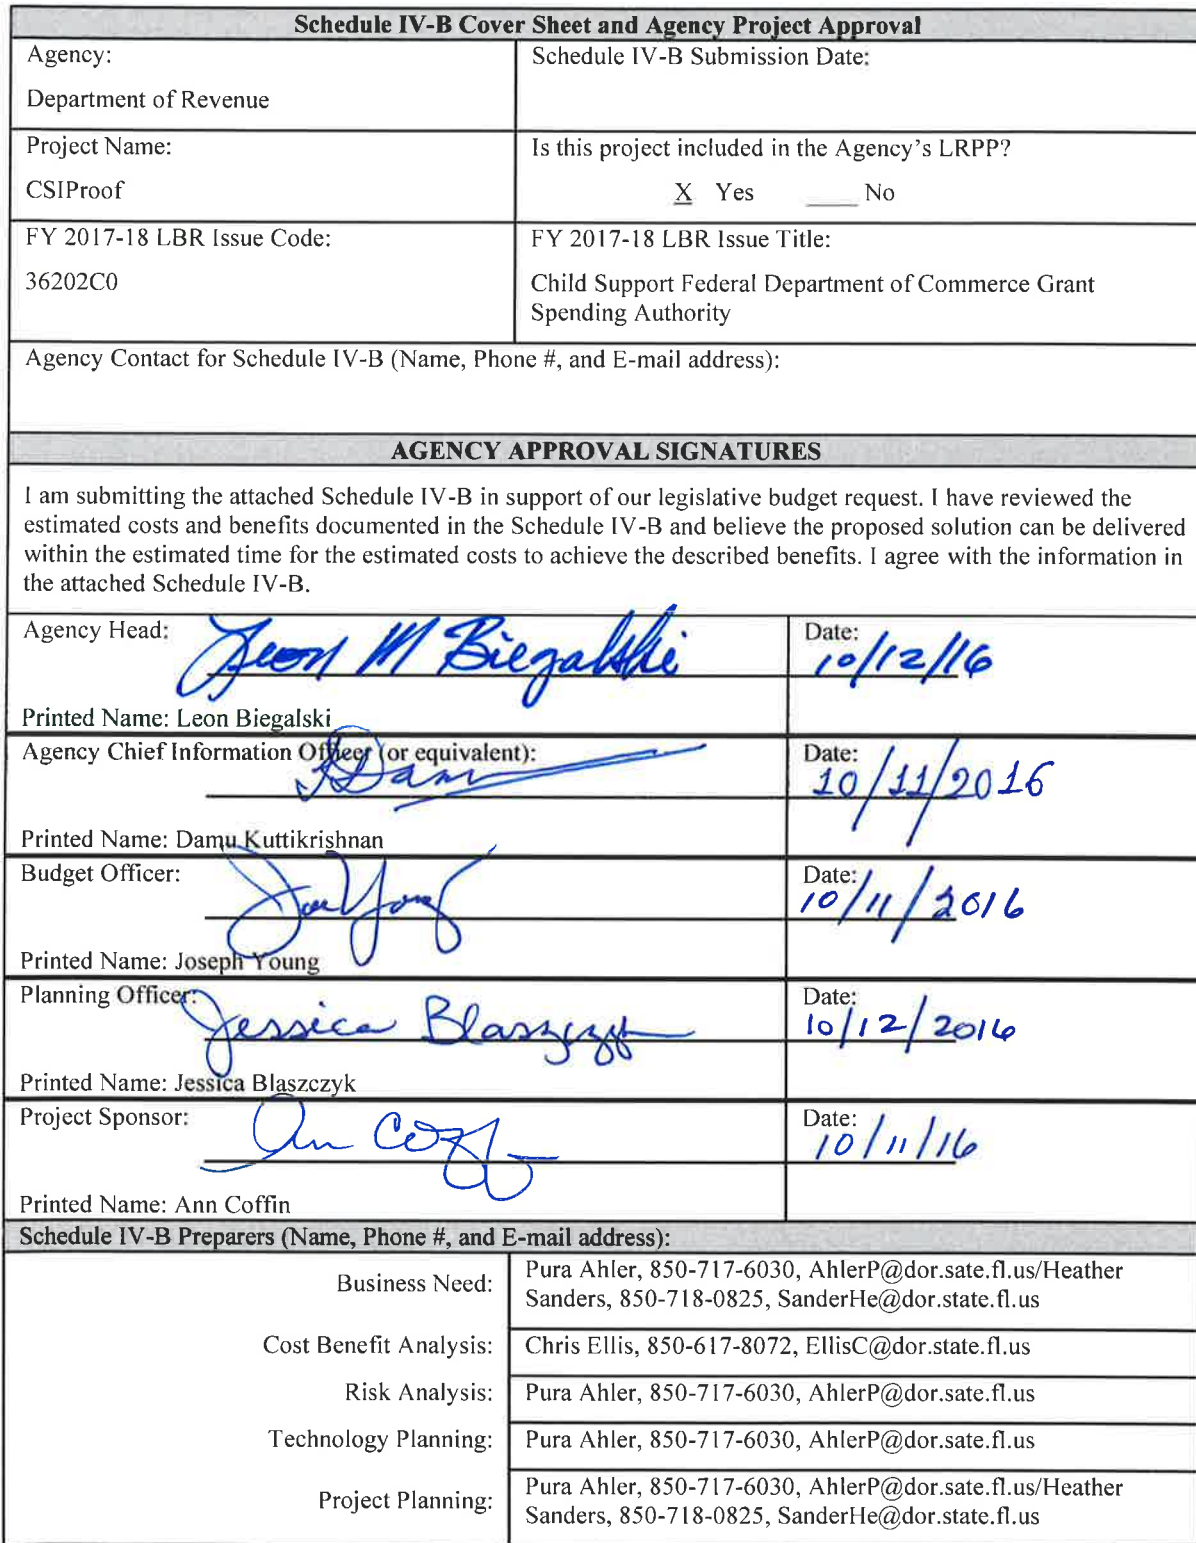 Schedule IV-B Cover Sheet and Agency Project Approval
Agency:
Department of Revenue
Schedule IV-B Submission Date:
Project Name:
CSIProof
Is this project included in the Agency's LRPP?
X Yes ____ No
FY 2017-18 LBR Issue Code:
36202C0
FY 2017-18 LBR Issue Title:
Child Support Federal Department of Commerce Grant
Spending Authority
Agency Contact for Schedule IV-B (Name, Phone #, and E-mail address):
AGENCY APPROVAL SIGNATURES
I am submitting the attached Schedule IV-B in support of our legislative budget request. I have reviewed the
estimated costs and benefits documented in the Schedule IV-B and believe the proposed solution can be delivered
within the estimated time for the estimated costs to achieve the described benefits. I agree with the information in
the attached Schedule IV-B.
Agency Head:
Leon M Biegalski
Date:
10/12/16
Printed Name: Leon Biegalski
Agency Chief Information Officer (or equivalent):
Date:
10/11/2016
Printed Name: Damu Kuttikrishnan
Budget Officer:
Joe Young
Date:
10/11/2016
Printed Name: Joseph Young
Planning Officer:
Jessica Blaszczyk
Date:
10/12/2016
Printed Name: Jessica Blaszczyk
Project Sponsor:
Ann Coffin
Date:
10/11/16
Printed Name: Ann Coffin
Schedule IV-B Preparers (Name, Phone #, and E-mail address):
Business Need:
Pura Ahler, 850-717-6030, AhlerP@dor.sate.fl.us/Heather
Sanders, 850-718-0825, SanderHe@dor.state.fl.us
Cost Benefit Analysis:
Chris Ellis, 850-617-8072, EllisC@dor.state.fl.us
Risk Analysis:
Pura Ahler, 850-717-6030, AhlerP@dor.sate.fl.us
Technology Planning:
Pura Ahler, 850-717-6030, AhlerP@dor.sate.fl.us
Project Planning:
Pura Ahler, 850-717-6030, AhlerP@dor.sate.fl.us/Heather
Sanders, 850-718-0825, SanderHe@dor.state.fl.us